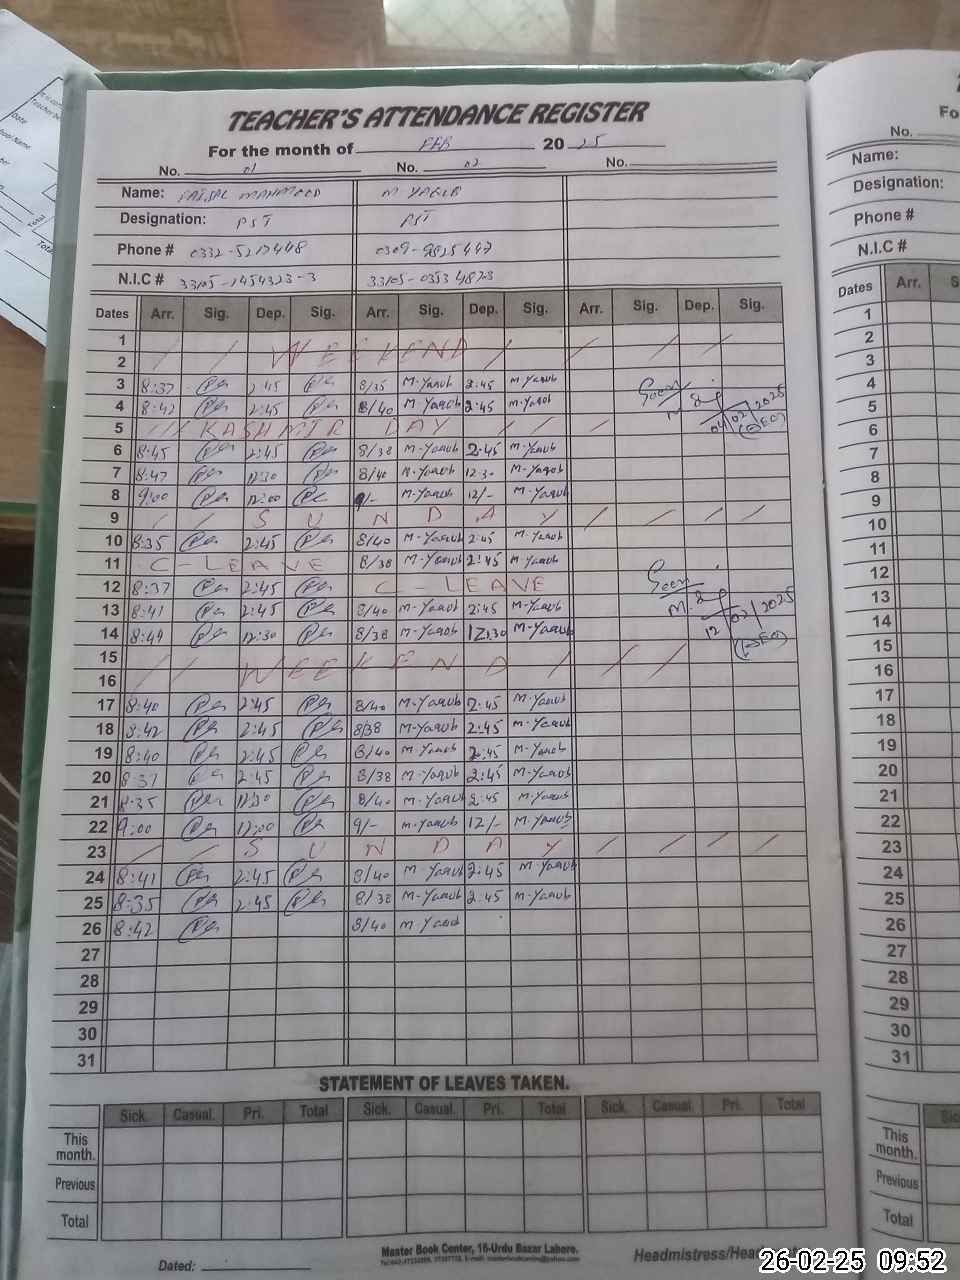 TEACHER'S ATTENDANCE REGISTER
For the month of FEB 2025
No. 01 No. 02 No.
Name: FAISAL MAHMOOD M YAQUB
Designation: PST PST
Phone # 0332-5217448
N.I.C #
Dates Arr. Sig. Dep. Sig. Arr. Sig. Dep. Sig. Arr. Sig. Dep. Sig.
1
2 WEEKEND
3 8:37 2:45 8/35 M-Yaqub 2:45 M-Yaqub Seen
4 8:42 2:45 8/40 M-Yaqub 2:45 M-Yaqub 04/02/2025
5 KASHMIR DAY
6 8:45 2:45 8/38 M-Yaqub 2:45 M-Yaqub
7 8:47 12:30 8/40 M-Yaqub 12:30 M-Yaqub
8 9:00 12:00 9/- M-Yaqub 12/- M-Yaqub
9 SUNDAY
10 8:35 2:45 8/40 M-Yaqub 2:45 M-Yaqub
11 C-LEAVE 8/38 M-Yaqub 2:45 M-Yaqub
12 8:37 2:45 C-LEAVE Seen
13 8:41 2:45 8/40 M-Yaqub 2:45 M-Yaqub 12/02/2025
14 8:49 12:30 8/38 M-Yaqub 12:30 M-Yaqub
15
16 WEEKEND
17 8:40 2:45 8/40 M-Yaqub 2:45 M-Yaqub
18 8:42 2:45 8/38 M-Yaqub 2:45 M-Yaqub
19 8:40 2:45 8/40 M-Yaqub 2:45 M-Yaqub
20 8:37 2:45 8/38 M-Yaqub 2:45 M-Yaqub
21 8:35 12:30 8/40 M-Yaqub 2:45 M-Yaqub
22 9:00 12:00 9/- M-Yaqub 12/- M-Yaqub
23 SUNDAY
24 8:41 2:45 8/40 M-Yaqub 2:45 M-Yaqub
25 8:35 2:45 8/38 M-Yaqub 2:45 M-Yaqub
26 8:42 8/40 M-Yaqub
27
28
29
30
31
STATEMENT OF LEAVES TAKEN.
Sick. Casual. Pri. Total Sick. Casual. Pri. Total Sick. Casual. Pri. Total
This month.
Previous
Total
Master Book Center, 16-Urdu Bazar Lahore.
Dated: Headmistress/Head
No.
Name:
Designation:
Phone #
N.I.C #
Dates Arr.
1
2
3
4
5
6
7
8
9
10
11
12
13
14
15
16
17
18
19
20
21
22
23
24
25
26
27
28
29
30
31
This month.
Previous
Total
26-02-25 09:52